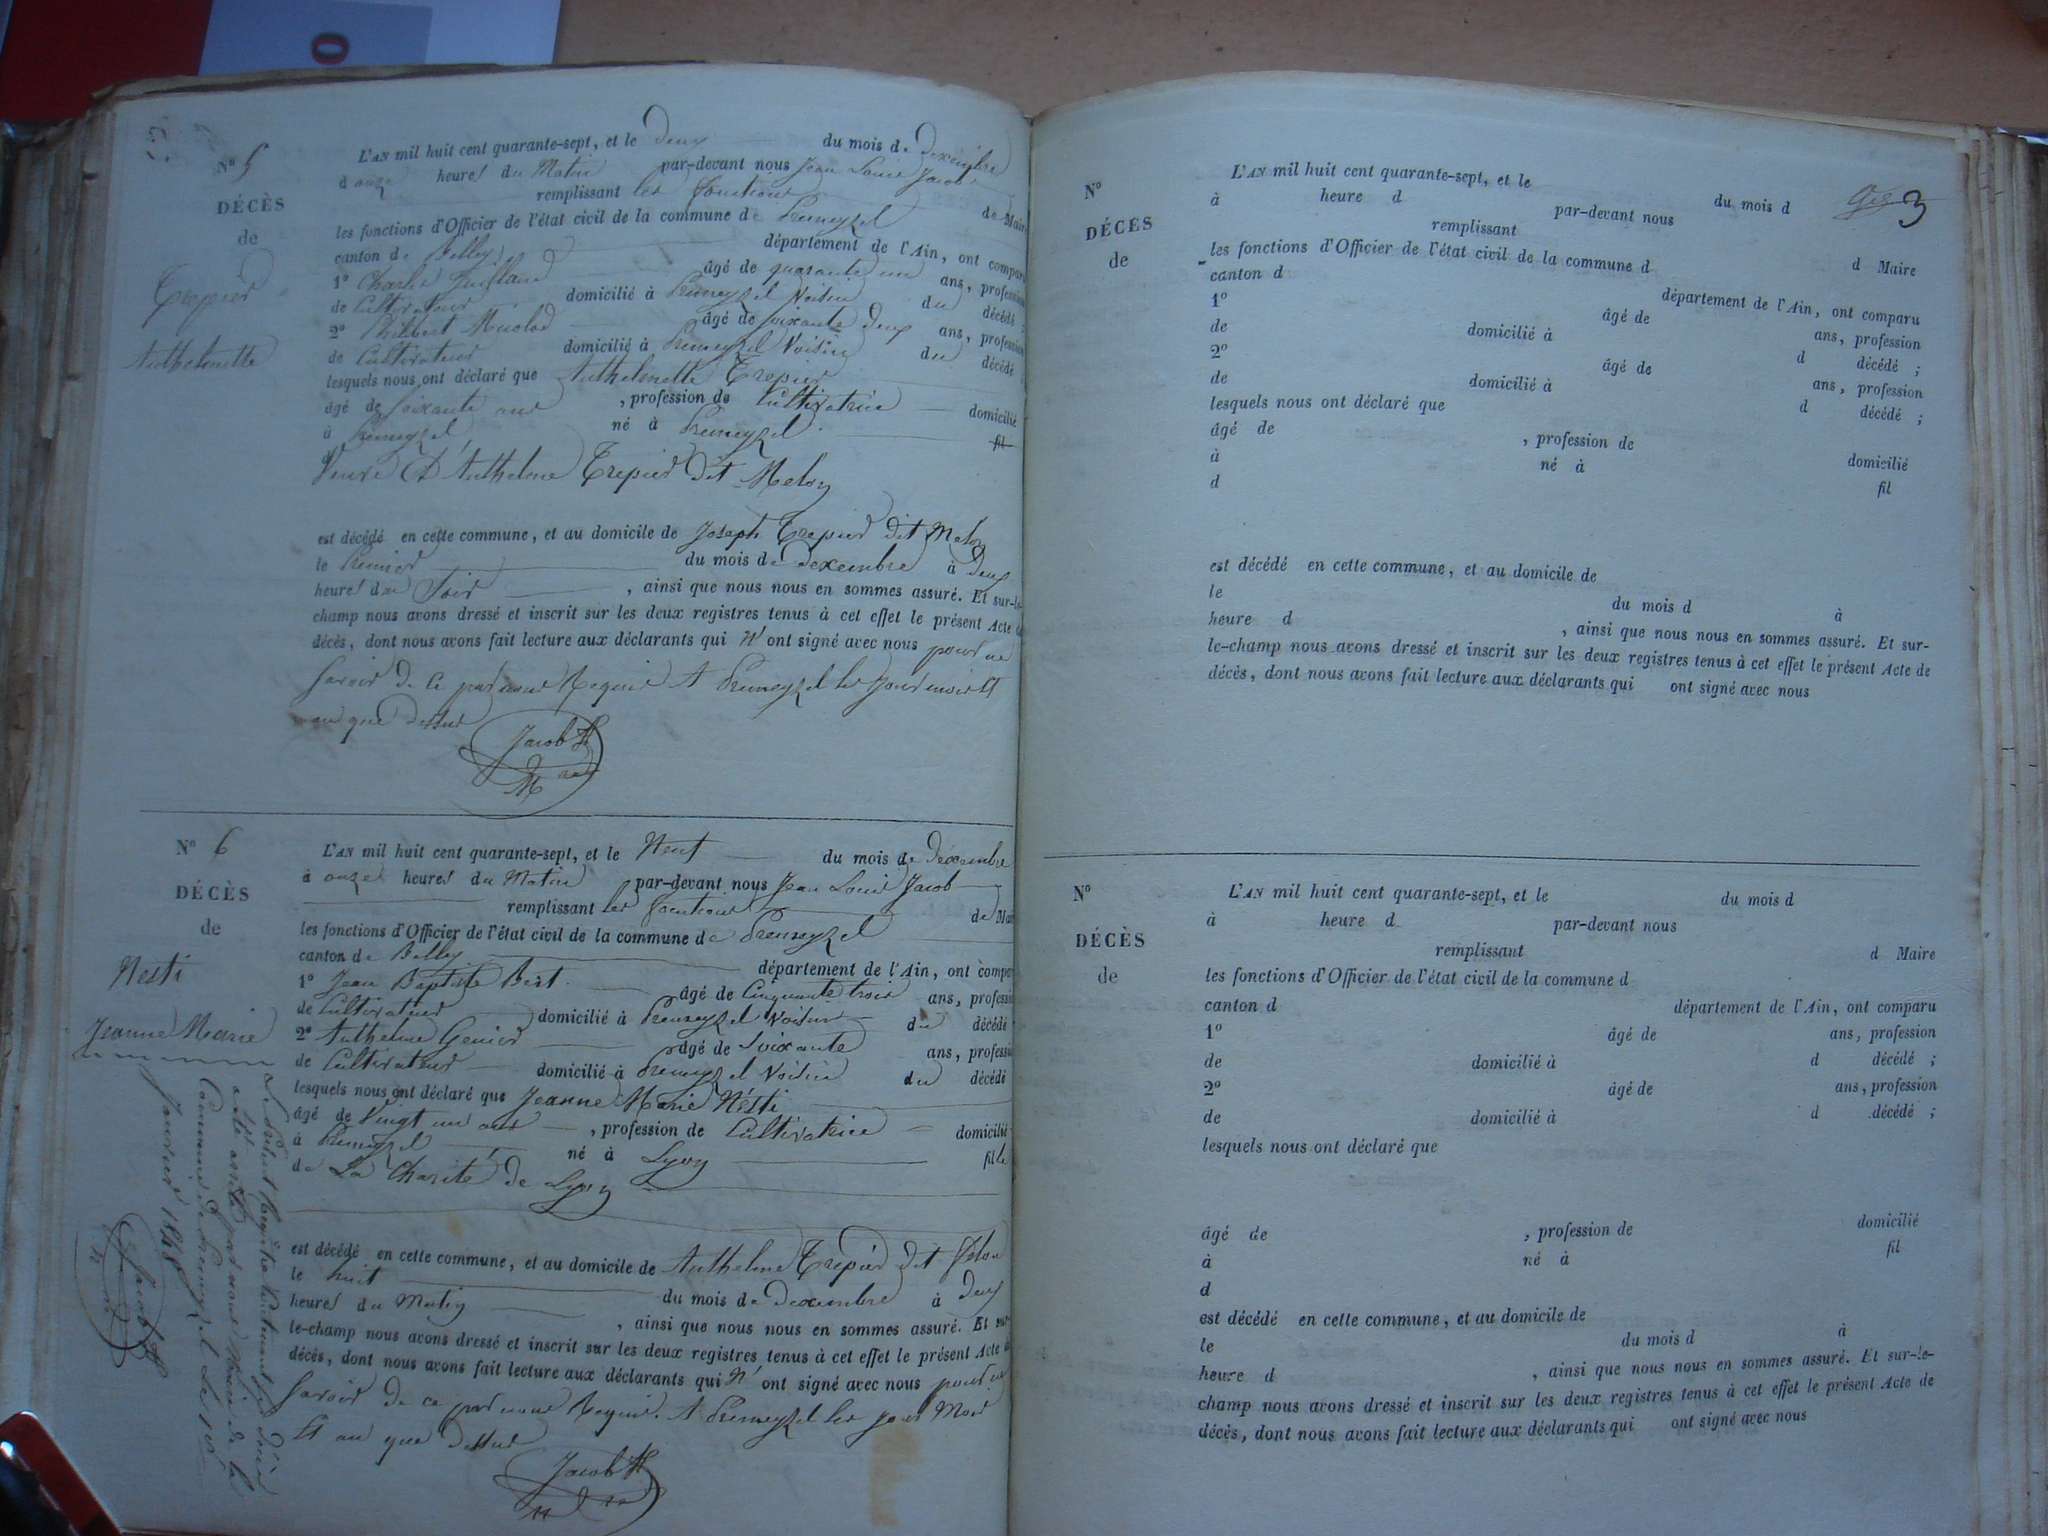 Nº 5
DÉCÈS
de
Trepier
Anthelmette
L'AN mil huit cent quarante-sept, et le deux du mois de dexembre
à onze heures du Matin par-devant nous Jean Louis Jacob
remplissant les fonctions de Maire
les fonctions d'Officier de l'état civil de la commune de Premeyzel
canton de Belley département de l'Ain, ont comparu
1º Charle âgé de quarante un ans, profession
de Cultivateur domicilié à Premeyzel Voisin du décédé ;
2º Philibert âgé de soixante deux ans, profession
de Cultivateur domicilié à Premeyzel Voisin du décédé
lesquels nous ont déclaré que Anthelmette Trepier
âgé de Soixante ans , profession de Cultivatrice domicilié
à Premeyzel né à Premeyzel fil
Veuve D'Anthelme Trepier dit Melon
est décédé en cette commune, et au domicile de Joseph Trepier dit Melon
le Premier du mois de dexembre à deux
heures du Soir , ainsi que nous nous en sommes assuré. Et sur-le-
champ nous avons dressé et inscrit sur les deux registres tenus à cet effet le présent Acte de
décès, dont nous avons fait lecture aux déclarants qui N' ont signé avec nous pour ne
Savoir de ce par nous Requis A Premeyzel les jour mois Et
an que dessus
Jacob
Nº 6
DÉCÈS
de
Nesti
Jeanne Marie
L'AN mil huit cent quarante-sept, et le Neuf du mois de Dexembre
à onze heures du Matin par-devant nous Jean Louis Jacob
remplissant les fonctions de Maire
les fonctions d'Officier de l'état civil de la commune de Premeyzel
canton de Belley département de l'Ain, ont comparu
1º Jean Baptiste Bert âgé de Cinquante trois ans, profession
de Cultivateur domicilié à Premeyzel Voisin du décédé
2º Anthelme Genier âgé de Soixante ans, profession
de Cultivateur domicilié à Premeyzel Voisin du décédé
lesquels nous ont déclaré que Jeanne Marie Nesti
âgé de Vingt un ans , profession de Cultivatrice domicilié
à Premeyzel né à Lyon fille
de La Charité de Lyon
est décédé en cette commune, et au domicile de Anthelme Trepier dit
le huit du mois de Dexembre à deux
heures du Matin , ainsi que nous nous en sommes assuré. Et sur-
le-champ nous avons dressé et inscrit sur les deux registres tenus à cet effet le présent Acte de
décès, dont nous avons fait lecture aux déclarants qui N' ont signé avec nous pour ne
Savoir de ce par nous Requis. A Premeyzel les jour Mois
Et an que dessus
Jacob
Le Présent Registre
a été arrêté par nous Maire de la
Commune de Premeyzel Le 1er
Janvier 1848
Jacob
3
Nº
DÉCÈS
de
L'AN mil huit cent quarante-sept, et le du mois d
à heure d par-devant nous
remplissant d Maire
les fonctions d'Officier de l'état civil de la commune d
canton d département de l'Ain, ont comparu
1º âgé de ans, profession
de domicilié à d décédé ;
2º âgé de ans, profession
de domicilié à d décédé ;
lesquels nous ont déclaré que
âgé de , profession de domicilié
à né à fil
d
est décédé en cette commune, et au domicile de
le du mois d à
heure d , ainsi que nous nous en sommes assuré. Et sur-
le-champ nous avons dressé et inscrit sur les deux registres tenus à cet effet le présent Acte de
décès, dont nous avons fait lecture aux déclarants qui ont signé avec nous
Nº
DÉCÈS
de
L'AN mil huit cent quarante-sept, et le du mois d
à heure d par-devant nous
remplissant d Maire
les fonctions d'Officier de l'état civil de la commune d
canton d département de l'Ain, ont comparu
1º âgé de ans, profession
de domicilié à d décédé ;
2º âgé de ans, profession
de domicilié à d décédé ;
lesquels nous ont déclaré que
âgé de , profession de domicilié
à né à fil
d
est décédé en cette commune, et au domicile de
le du mois d à
heure d , ainsi que nous nous en sommes assuré. Et sur-le-
champ nous avons dressé et inscrit sur les deux registres tenus à cet effet le présent Acte de
décès, dont nous avons fait lecture aux déclarants qui ont signé avec nous